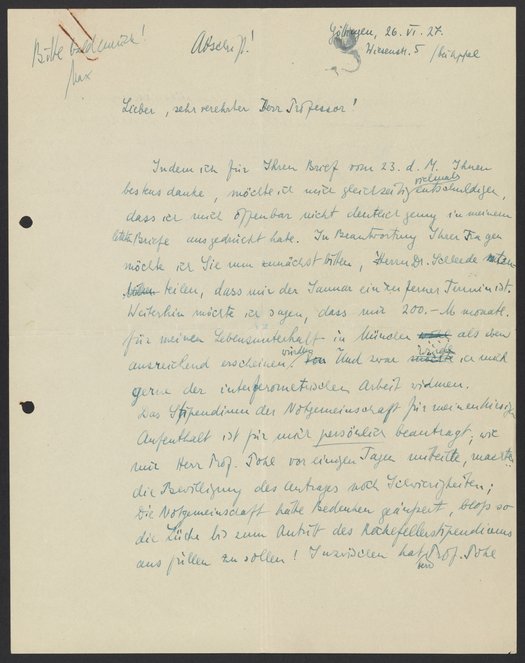 Göttingen, 26. VI. 27.
Bitte
Abschrift!
Max
Lieber, sehr verehrter Herr Professor!
Indem ich für Ihren Brief vom 23. d. M. Ihnen
bestens danke, möchte ich mich gleichzeitig vielmals entschuldigen,
dass ich mich offenbar nicht deutlich genug in meinem
letzten Briefe ausgedrückt habe. In Beantwortung Ihrer Fragen
möchte ich Sie nun zunächst bitten, Herrn Dr. Scheede
teilen, dass mir der Januar ein zu ferner Termin ist.
Weiterhin möchte ich sagen, dass mir 200.– M monatl.
für meinen Lebensunterhalt in München als dann
ausreichend erscheinen würden. Und zwar würde ich mich
gern der interferometrischen Arbeit widmen.
Das Stipendium der Notgemeinschaft für meinen hiesigen
Aufenthalt ist für mich persönlich beantragt; wie
mir Herr Prof. Pohl vor einigen Tagen mitteilte, macht
die Bewilligung des Antrages noch Schwierigkeiten;
die Notgemeinschaft hätte Bedenken geäußert, bloss so
die Lücke bis zum Antritt des Rockefellerstipendiums
ausfüllen zu sollen! Inzwischen hat Prof. Pohl